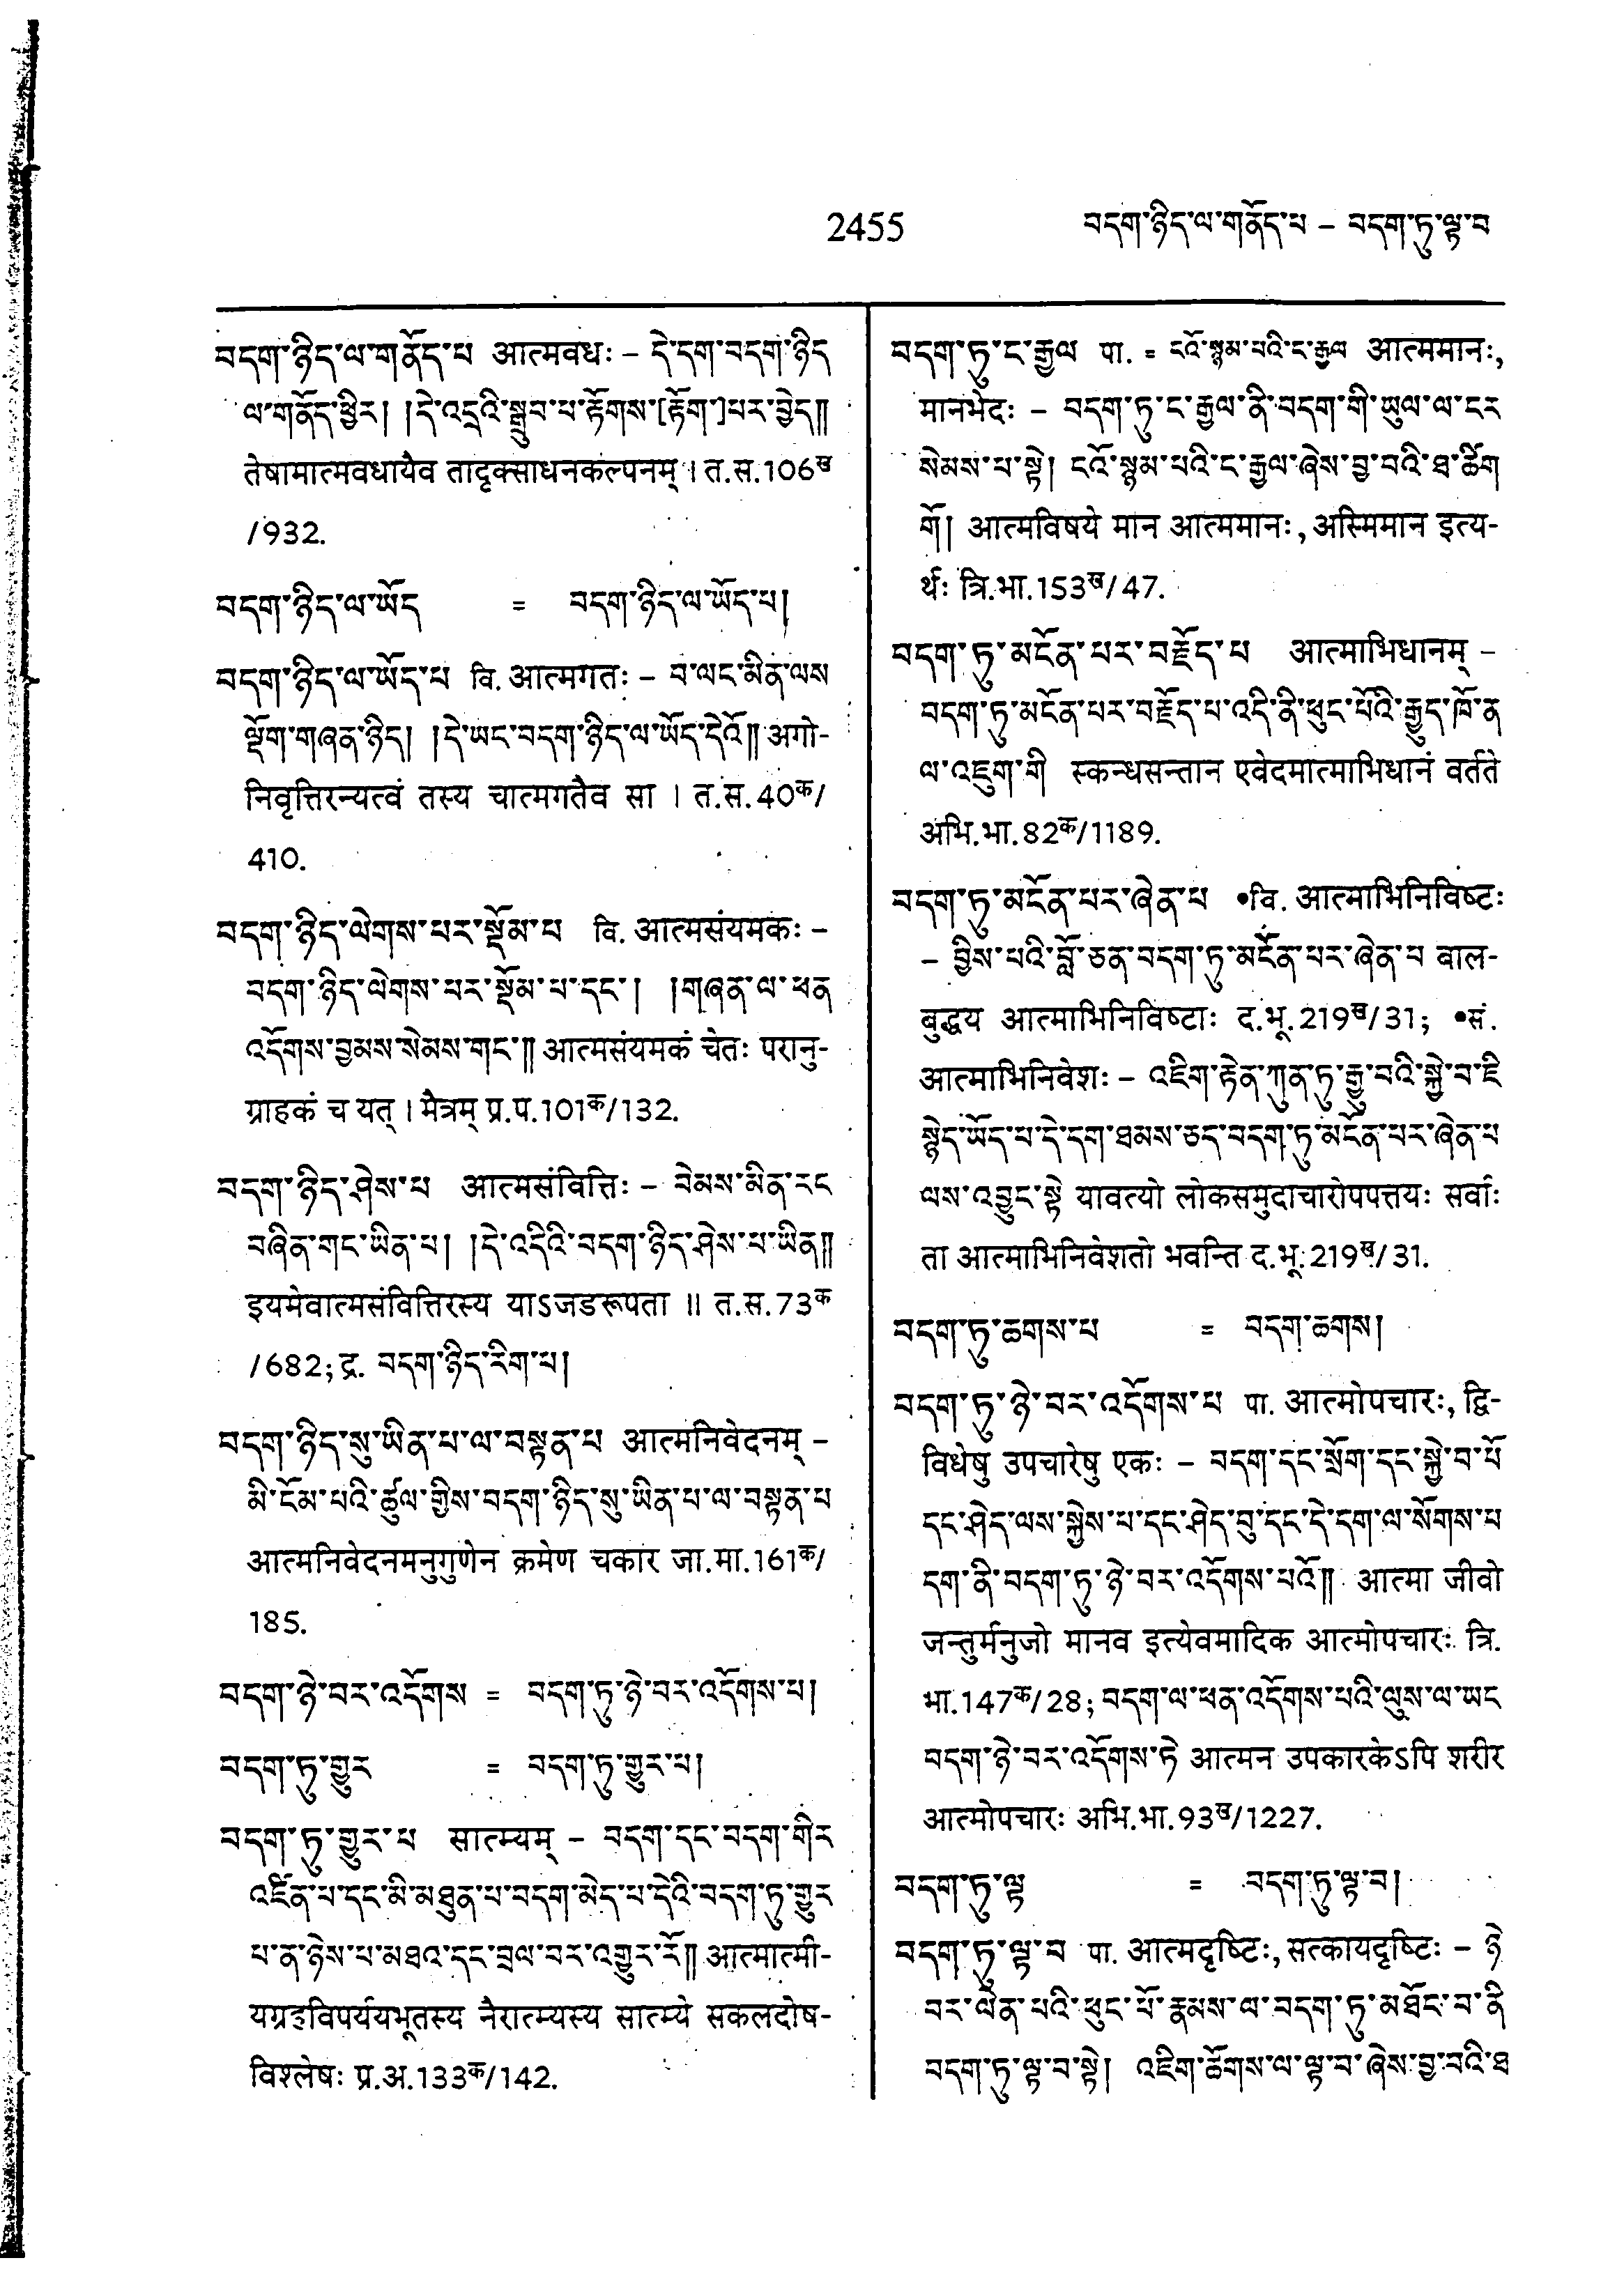 2455
བདག་ཉིད་ལ་གནོད་པ – བདག་ཏུ་ལྟ་བ
བདག་ཉིད་ལ་གནོད་པ आत्मवधः – དེ་དག་བདག་ཉིད
ལ་གནོད་ཕྱིར། །དེ་འདྲའི་སྒྲུབ་པ་རྟོགས་[རྟོག་]པར་བྱེད༎
तेषामात्मवधायैव तादृक्साधनकल्पनम् । त.स.106ख
/932.
བདག་ཉིད་ལ་ཡོད = བདག་ཉིད་ལ་ཡོད་པ།
བདག་ཉིད་ལ་ཡོད་པ वि. आत्मगतः – བ་ལང་མིན་ལས
ལྡོག་གཞན་ཉིད། །དེ་ཡང་བདག་ཉིད་ལ་ཡོད་དེའོ༎ अगो-
निवृत्तिरन्यत्वं तस्य चात्मगतैव सा । त.स.40क/
410.
བདག་ཉིད་ལེགས་པར་སྡོམ་པ वि. आत्मसंयमकः –
བདག་ཉིད་ལེགས་པར་སྡོམ་པ་དང་། །གཞན་ལ་ཕན
འདོགས་བྱམས་སེམས་གང་༎ आत्मसंयमकं चेतः परानु-
ग्राहकं च यत् । मैत्रम् प्र.प.101क/132.
བདག་ཉིད་ཤེས་པ आत्मसंवित्तिः – བེམས་མིན་རང
བཞིན་གང་ཡིན་པ། །དེ་འདིའི་བདག་ཉིད་ཤེས་པ་ཡིན༎
इयमेवात्मसंवित्तिरस्य याऽजडरूपता ॥ त.स.73क
/682; द्र. བདག་ཉིད་རིག་པ།
བདག་ཉིད་སུ་ཡིན་པ་ལ་བསྟན་པ आत्मनिवेदनम् –
མི་ངོམ་པའི་ཚུལ་གྱིས་བདག་ཉིད་སུ་ཡིན་པ་ལ་བསྟན་པ
आत्मनिवेदनमनुगुणेन क्रमेण चकार जा.मा.161क/
185.
བདག་ཉེ་བར་འདོགས = བདག་ཏུ་ཉེ་བར་འདོགས་པ།
བདག་ཏུ་གྱུར = བདག་ཏུ་གྱུར་པ།
བདག་ཏུ་གྱུར་པ सात्म्यम् – བདག་དང་བདག་གིར
འཛིན་པ་དང་མི་མཐུན་པ་བདག་མེད་པ་དེའི་བདག་ཏུ་གྱུར
པ་ན་ཉེས་པ་མཐའ་དང་བྲལ་བར་འགྱུར་རོ༎ आत्मात्मी-
यग्रहविपर्ययभूतस्य नैरात्म्यस्य सात्म्ये सकलदोष-
विश्लेषः प्र.अ.133क/142.
བདག་ཏུ་ང་རྒྱལ पा. = ངའོ་སྙམ་པའི་ང་རྒྱལ आत्ममानः,
मानभेदः – བདག་ཏུ་ང་རྒྱལ་ནི་བདག་གི་ཡུལ་ལ་ངར
སེམས་པ་སྟེ། ངའོ་སྙམ་པའི་ང་རྒྱལ་ཞེས་བྱ་བའི་ཐ་ཚིག
གོ། आत्मविषये मान आत्ममानः, अस्मिमान इत्य-
र्थः त्रि.भा.153ख/47.
བདག་ཏུ་མངོན་པར་བརྗོད་པ आत्माभिधानम् –
བདག་ཏུ་མངོན་པར་བརྗོད་པ་འདི་ནི་ཕུང་པོའི་རྒྱུད་ཁོ་ན
ལ་འཇུག་གི स्कन्धसन्तान एवेदमात्माभिधानं वर्तते
अभि.भा.82क/1189.
བདག་ཏུ་མངོན་པར་ཞེན་པ •वि. आत्माभिनिविष्टः
– བྱིས་པའི་བློ་ཅན་བདག་ཏུ་མངོན་པར་ཞེན་པ बाल-
बुद्धय आत्माभिनिविष्टाः द.भू.219ख/31; •सं.
आत्माभिनिवेशः – འཇིག་རྟེན་ཀུན་ཏུ་རྒྱུ་བའི་སྐྱེ་བ་ཇི
སྙེད་ཡོད་པ་དེ་དག་ཐམས་ཅད་བདག་ཏུ་མངོན་པར་ཞེན་པ
ལས་འབྱུང་སྟེ यावत्यो लोकसमुदाचारोपपत्तयः सर्वाः
ता आत्माभिनिवेशतो भवन्ति द.भू.219ख/31.
བདག་ཏུ་ཆགས་པ = བདག་ཆགས།
བདག་ཏུ་ཉེ་བར་འདོགས་པ पा. आत्मोपचारः, द्वि-
विधेषु उपचारेषु एकः – བདག་དང་སྲོག་དང་སྐྱེ་བ་པོ
དང་ཤེད་ལས་སྐྱེས་པ་དང་ཤེད་བུ་དང་དེ་དག་ལ་སོགས་པ
དག་ནི་བདག་ཏུ་ཉེ་བར་འདོགས་པའོ༎ आत्मा जीवो
जन्तुर्मनुजो मानव इत्येवमादिक आत्मोपचारः त्रि.
भा.147क/28; བདག་ལ་ཕན་འདོགས་པའི་ལུས་ལ་ཡང
བདག་ཉེ་བར་འདོགས་ཏེ आत्मन उपकारकेऽपि शरीर
आत्मोपचारः अभि.भा.93ख/1227.
བདག་ཏུ་ལྟ = བདག་ཏུ་ལྟ་བ།
བདག་ཏུ་ལྟ་བ पा. आत्मदृष्टिः, सत्कायदृष्टिः – ཉེ
བར་ལེན་པའི་ཕུང་པོ་རྣམས་ལ་བདག་ཏུ་མཐོང་བ་ནི
བདག་ཏུ་ལྟ་བ་སྟེ། འཇིག་ཚོགས་ལ་ལྟ་བ་ཞེས་བྱ་བའི་ཐ